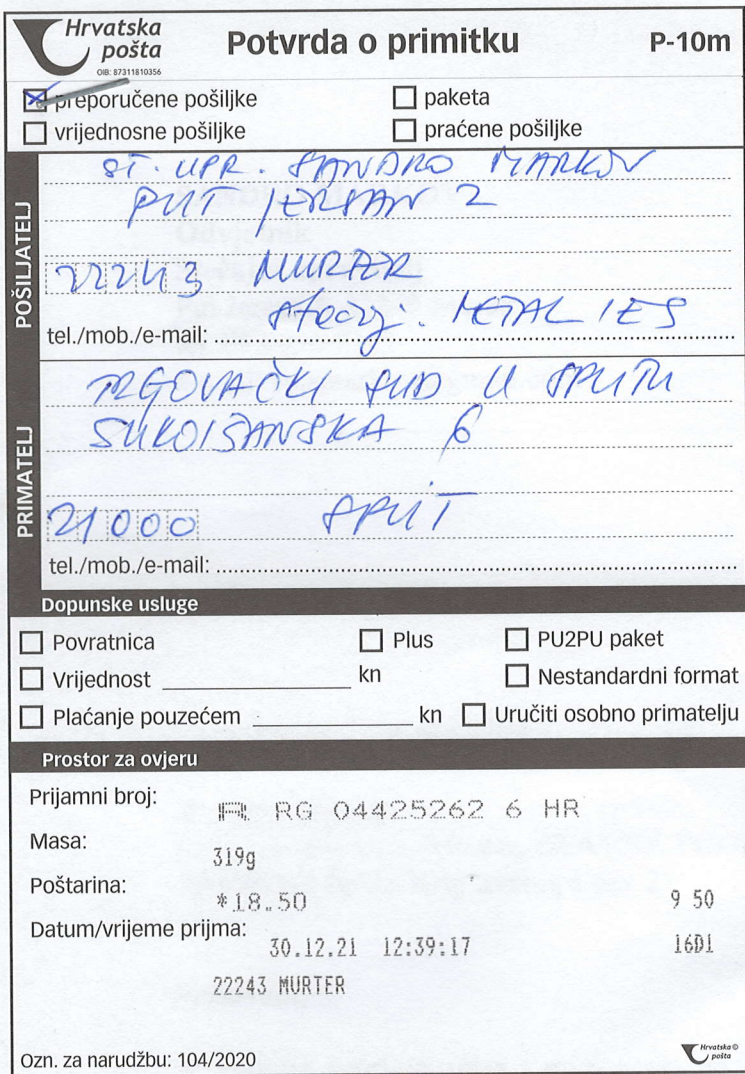 Hrvatska pošta
OIB: 87311810356
Potvrda o primitku
P-10m
preporučene pošiljke
paketa
vrijednosne pošiljke
praćene pošiljke
POŠILJATELJ
ST. UPR. SANDRO MARKOV
PUT JERSAN 2
22243 MURTER
tel./mob./e-mail: Stečaj. METAL IES
PRIMATELJ
TRGOVAČKI SUD U SPLITU
SUKOIŠANSKA 6
21000 SPLIT
tel./mob./e-mail:
Dopunske usluge
Povratnica
Plus
PU2PU paket
Vrijednost kn
Nestandardni format
Plaćanje pouzećem kn
Uručiti osobno primatelju
Prostor za ovjeru
Prijamni broj: R RG 04425262 6 HR
Masa: 319g
Poštarina: *18.50 9 50
Datum/vrijeme prijma: 30.12.21 12:39:17 16D1
22243 MURTER
Ozn. za narudžbu: 104/2020
Hrvatska © pošta